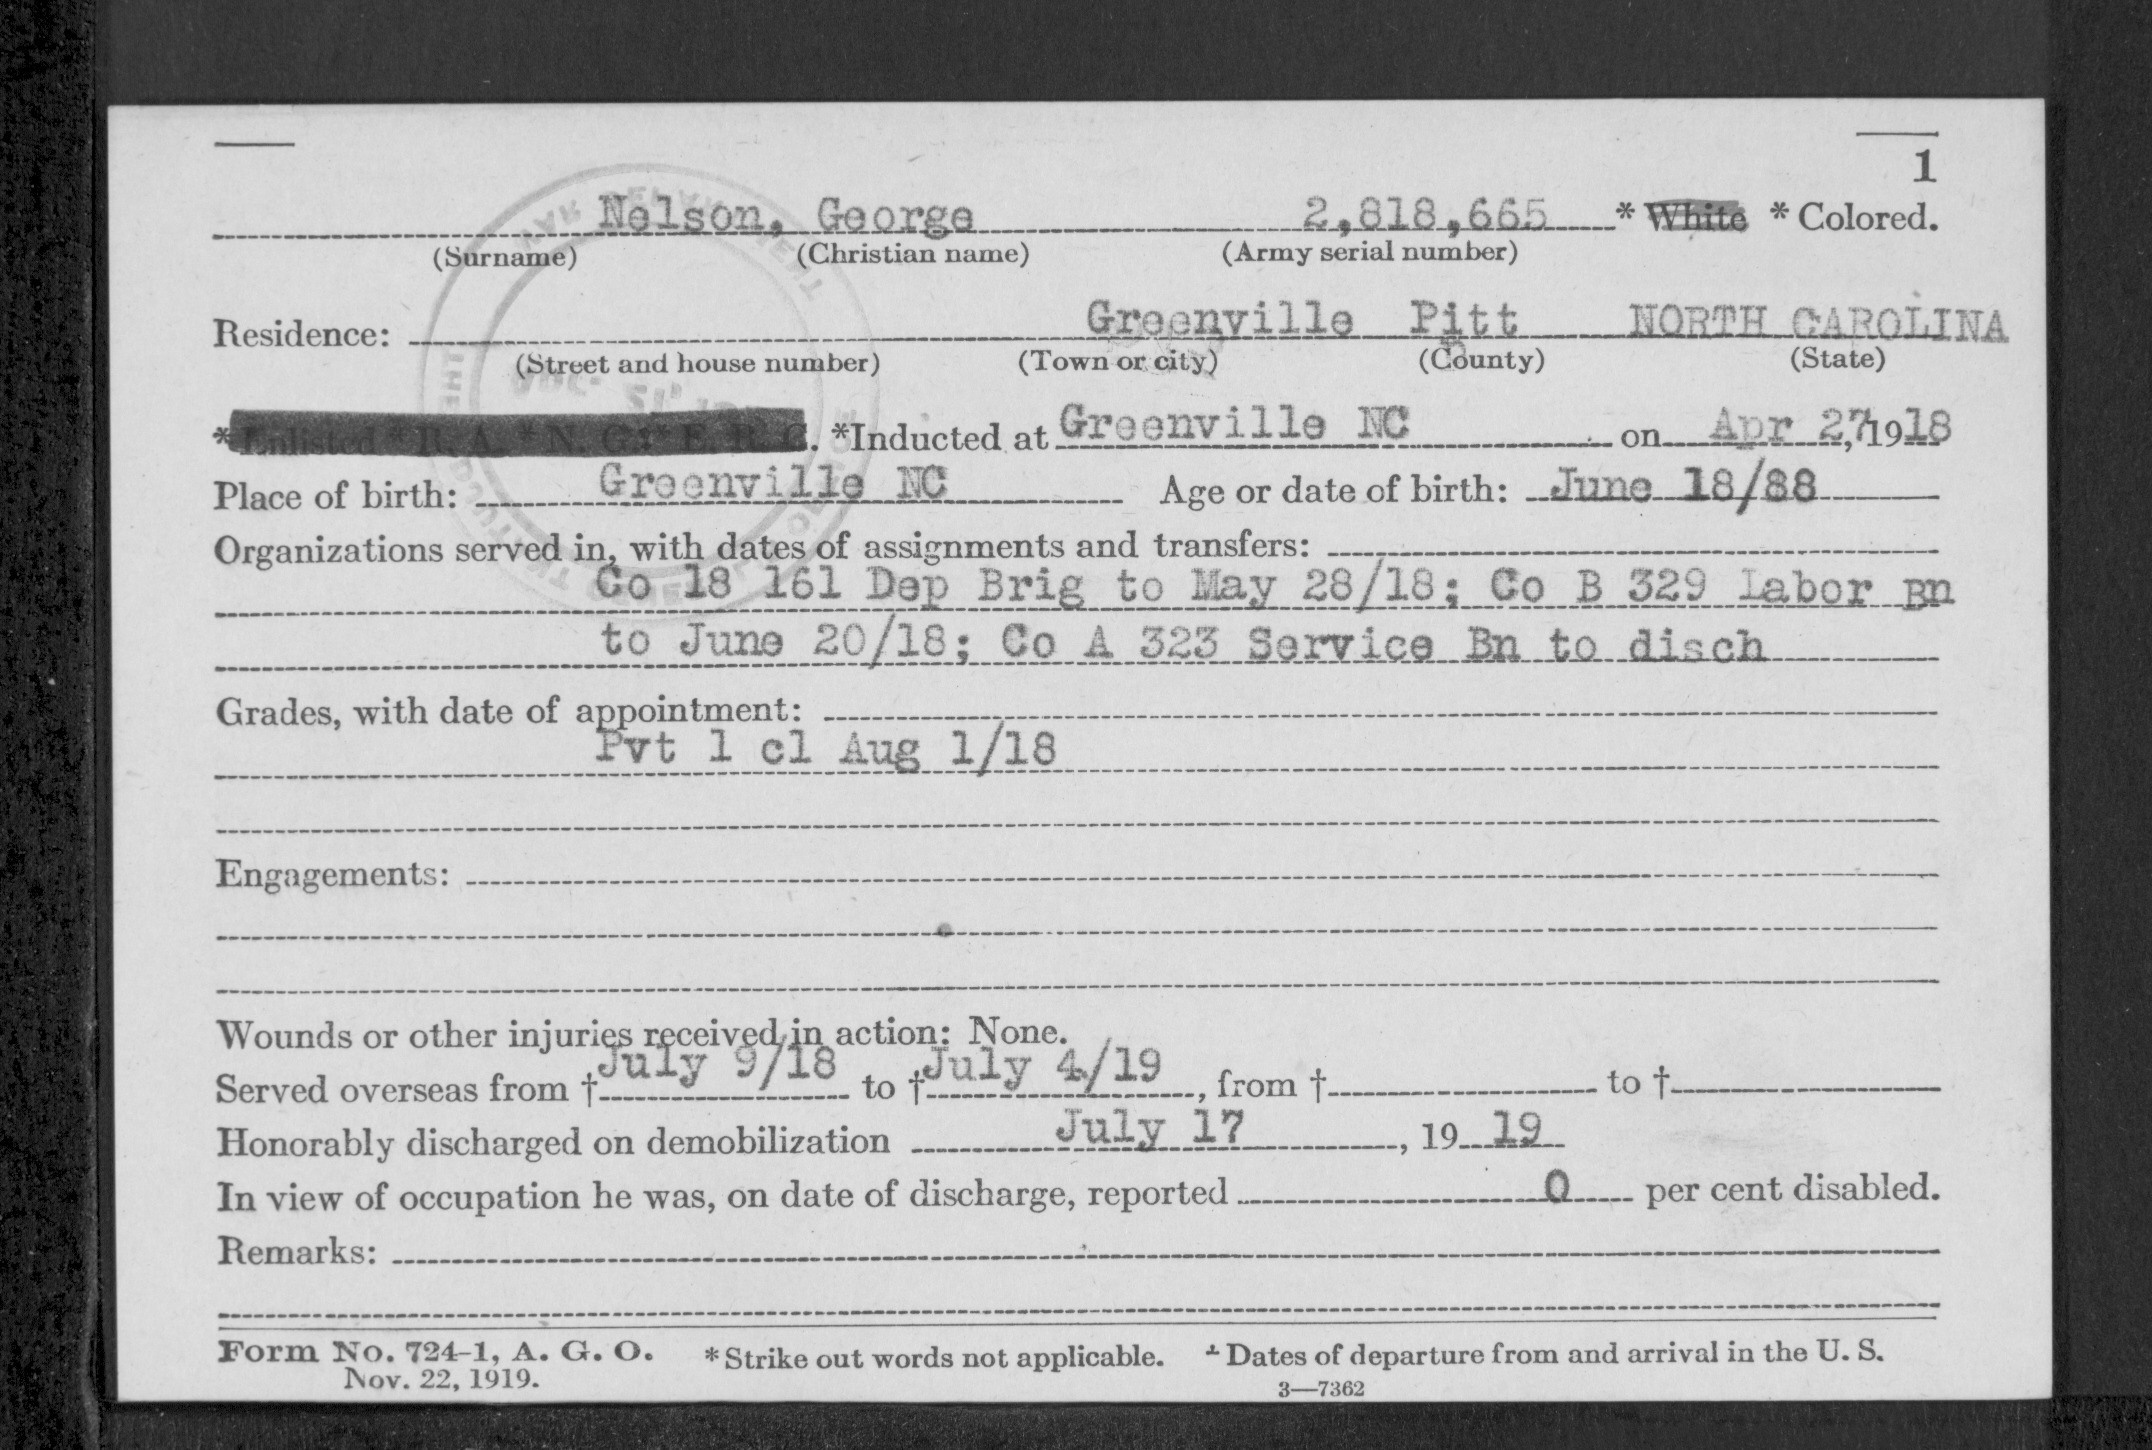 1
Nelson, George 2,818,665 * White * Colored.
(Surname) (Christian name) (Army serial number)
Residence: Greenville Pitt NORTH CAROLINA
(Street and house number) (Town or city) (County) (State)
*Enlisted * R. A. * N. G. * E. R. C. *Inducted at Greenville NC on Apr 27, 1918
Place of birth: Greenville NC Age or date of birth: June 18/88
Organizations served in, with dates of assignments and transfers:
Co 18 161 Dep Brig to May 28/18; Co B 329 Labor Bn
to June 20/18; Co A 323 Service Bn to disch
Grades, with date of appointment:
Pvt 1 cl Aug 1/18
Engagements:
Wounds or other injuries received in action: None.
Served overseas from † July 9/18 to † July 4/19, from † to †
Honorably discharged on demobilization July 17, 19 19
In view of occupation he was, on date of discharge, reported 0 per cent disabled.
Remarks:
Form No. 724-1, A. G. O. *Strike out words not applicable. † Dates of departure from and arrival in the U. S.
Nov. 22, 1919. 3—7362